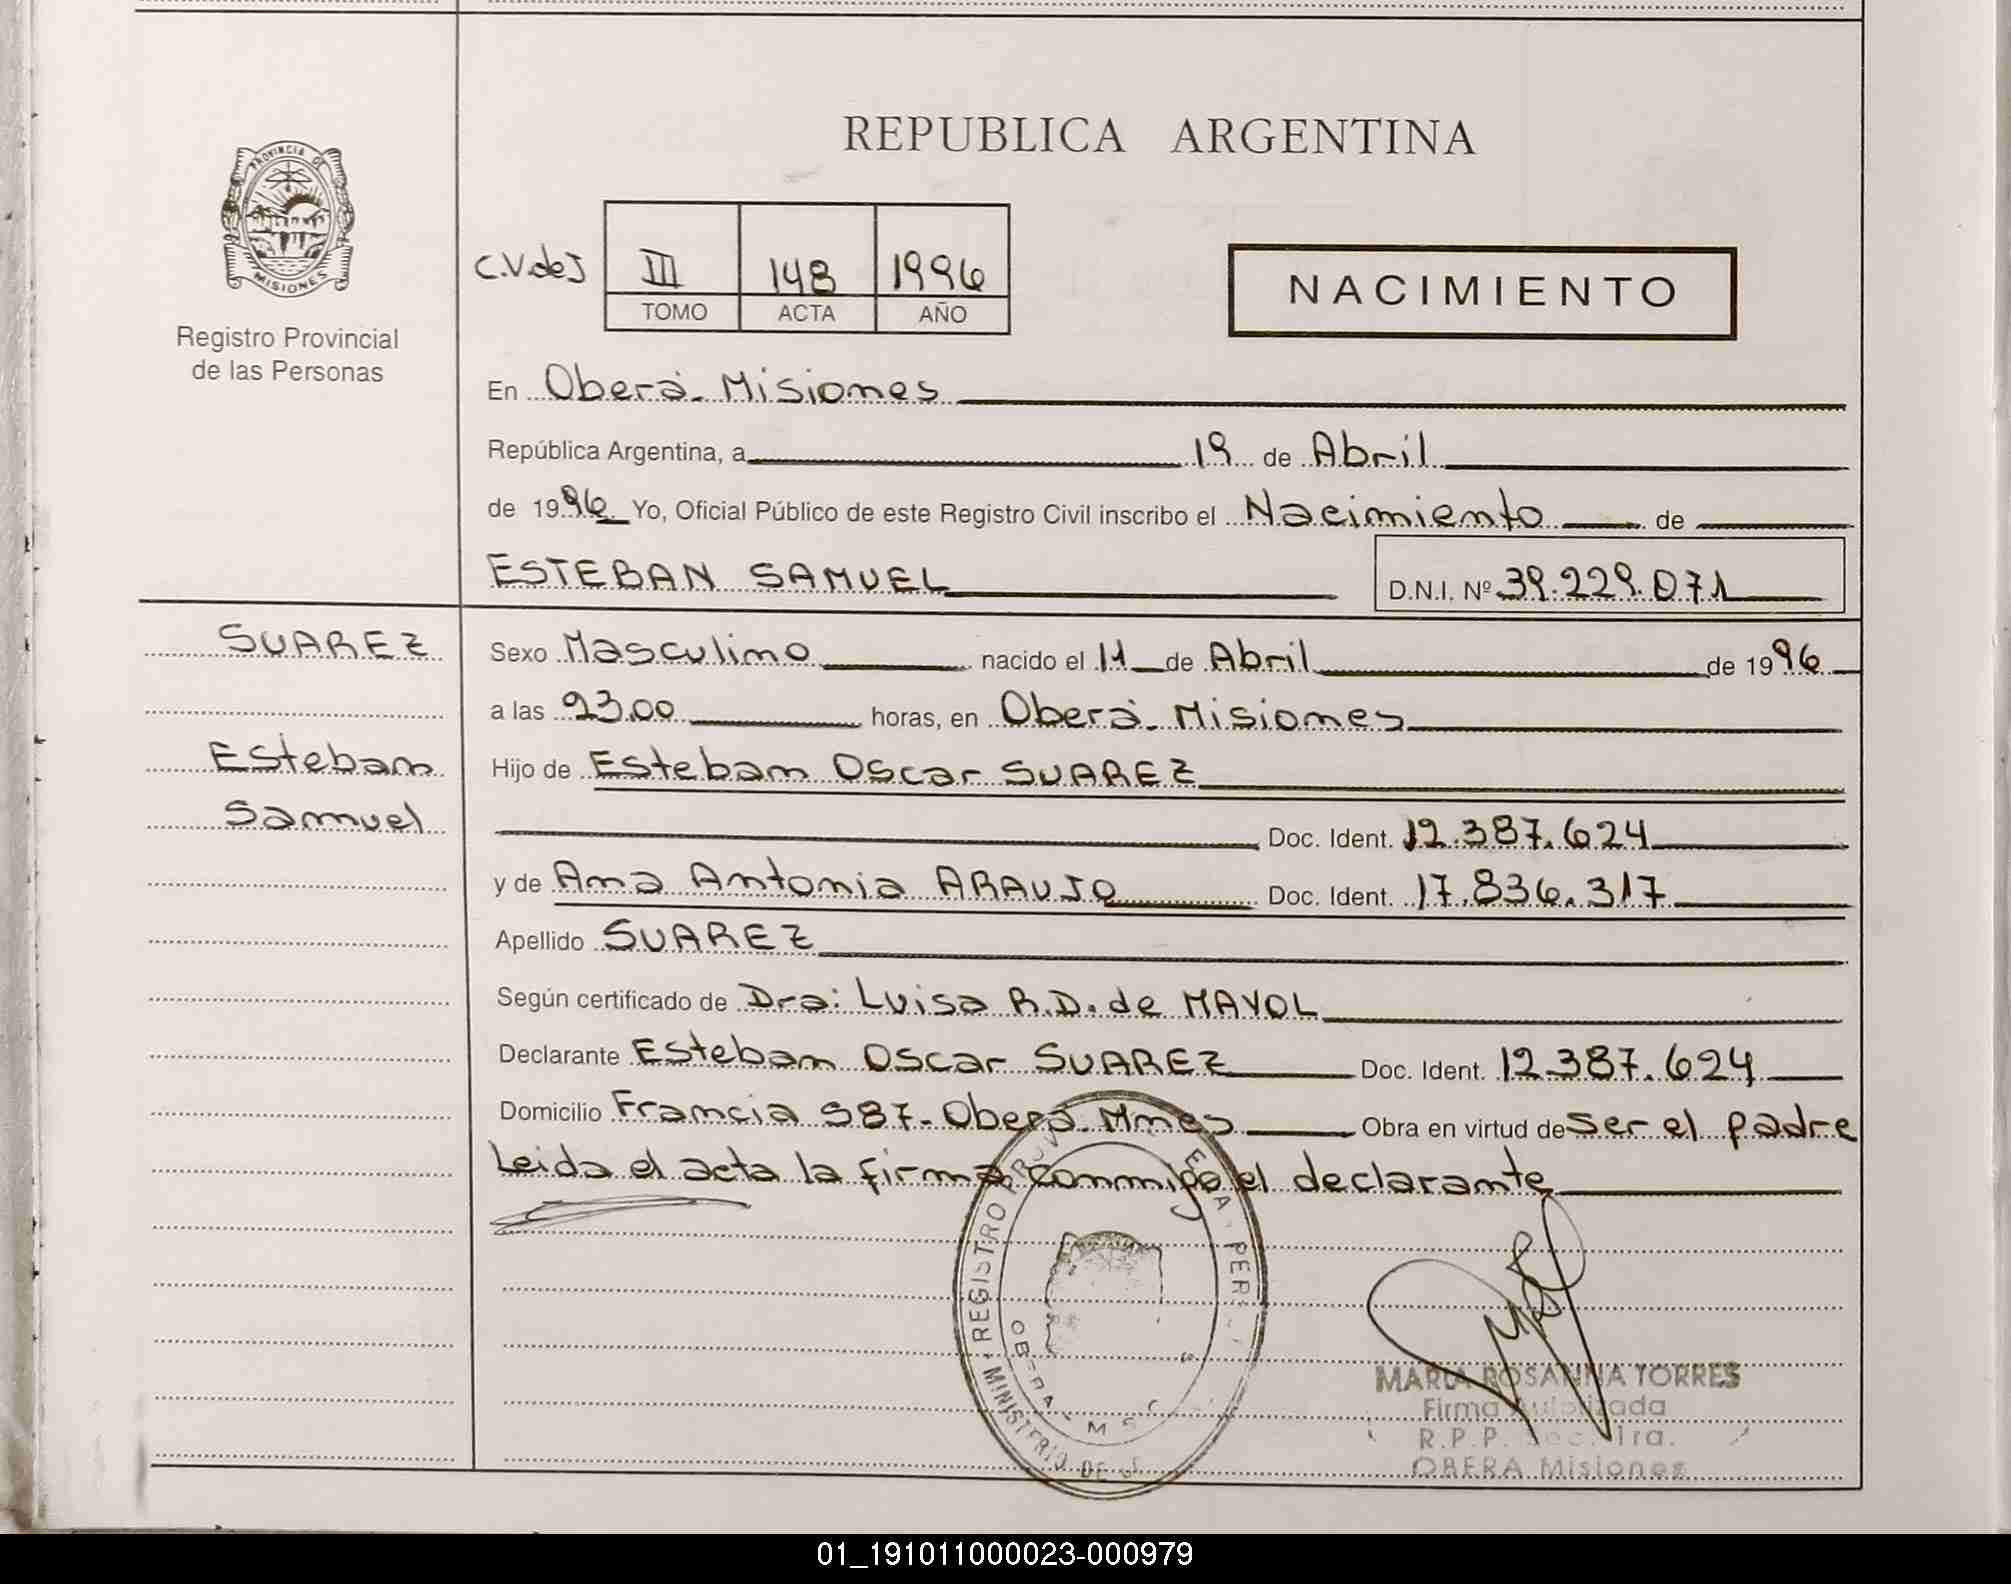 PROVINCIA DE
MISIONES
Registro Provincial
de las Personas
REPUBLICA ARGENTINA
C.V.deJ III 148 1996
TOMO ACTA AÑO
NACIMIENTO
En Oberá. Misiones
República Argentina, a 19 de Abril
de 1996 Yo, Oficial Público de este Registro Civil inscribo el Nacimiento de
ESTEBAN SAMUEL D.N.I. Nº 39.229.071
SUAREZ
Esteban
Samuel
Sexo Masculino nacido el 11 de Abril de 1996
a las 23.00 horas, en Oberá. Misiones
Hijo de Esteban Oscar SUAREZ
Doc. Ident. 12.387.624
y de Ana Antonia ARAUJO Doc. Ident. 17.836.317
Apellido SUAREZ
Según certificado de Dra: Luisa R.D. de MAYOL
Declarante Esteban Oscar SUAREZ Doc. Ident. 12.387.624
Domicilio Francia 987. Oberá. Mnes Obra en virtud de Ser el padre
Leida el acta la firma conmigo el declarante
REGISTRO
MINISTERIO DE
MARIA ROSANNA TORRES
Firma Autorizada
R.P.P. Sec. 1ra.
OBERA Misiones
01_191011000023-000979